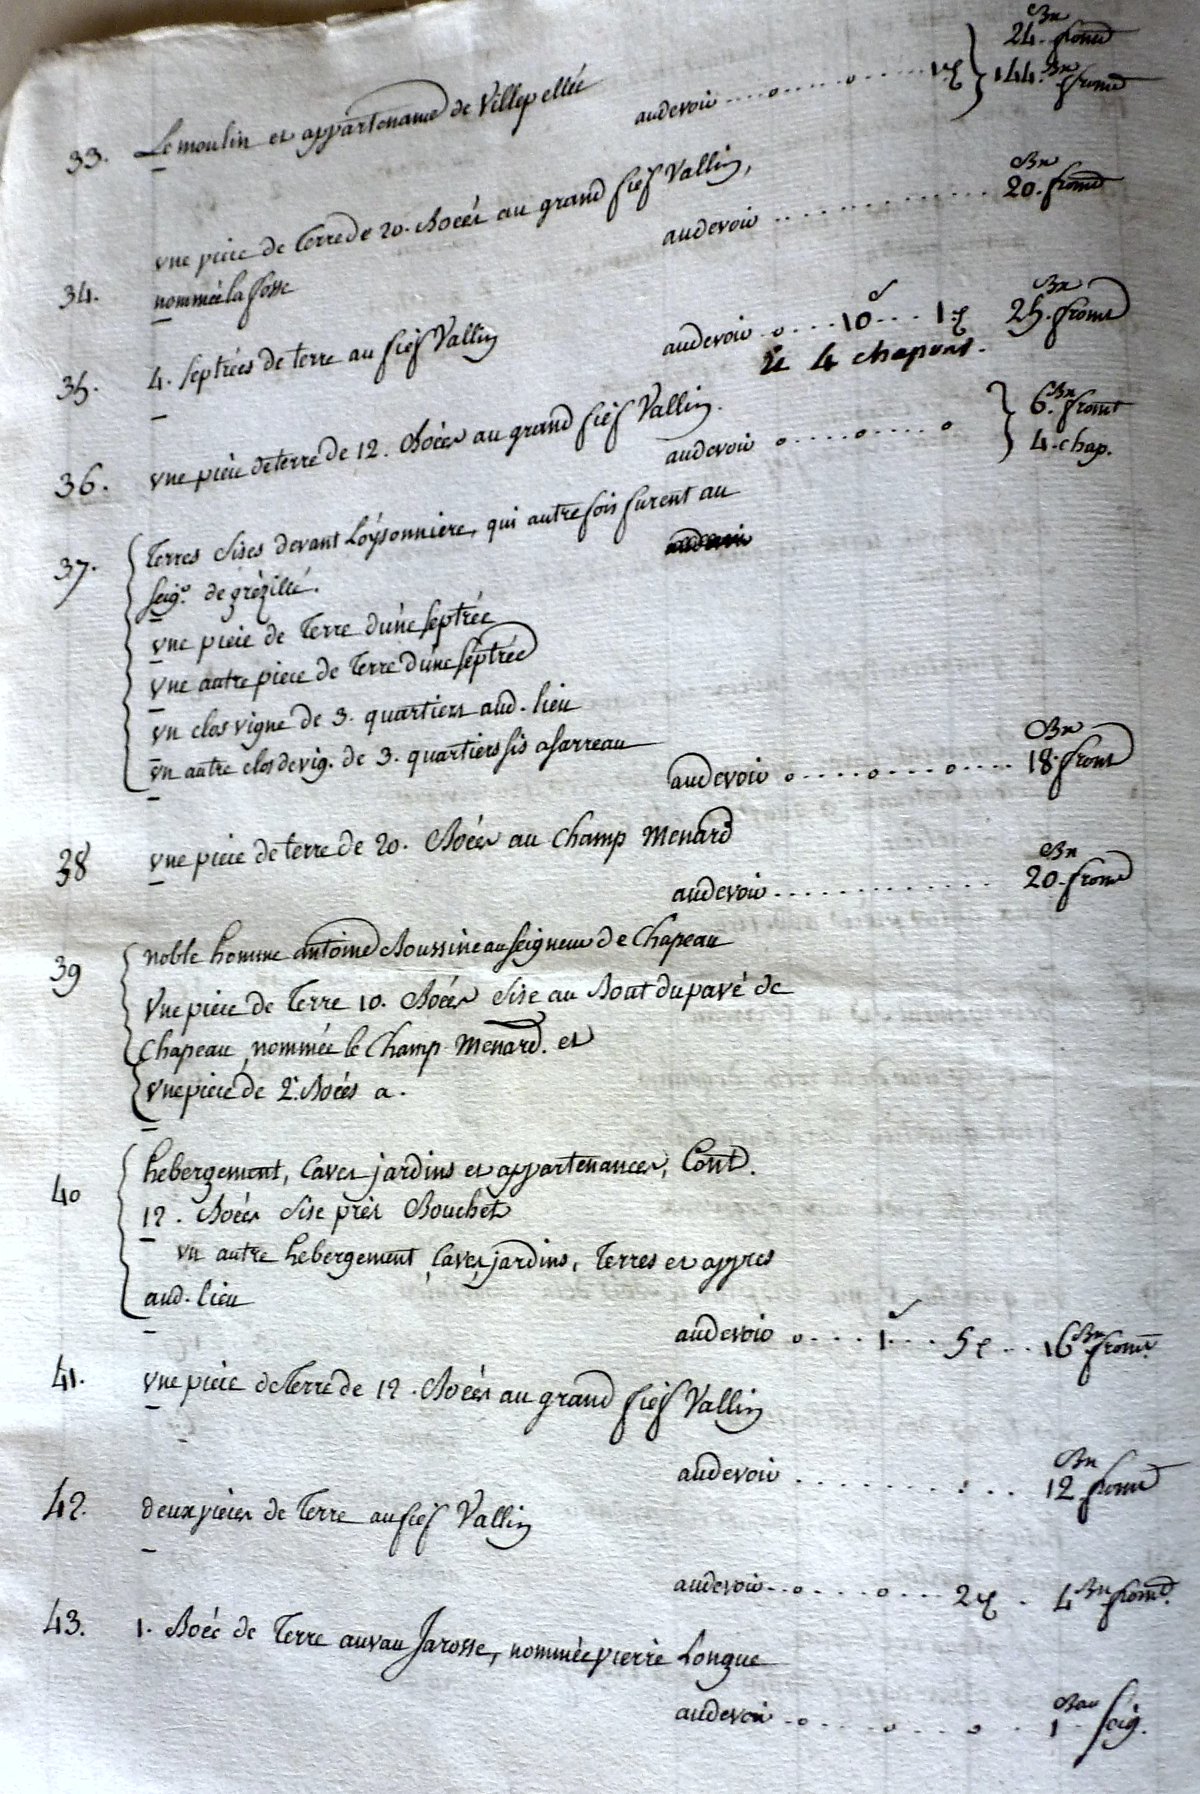 33. Le moulin et appartenance de Villepellée
Bn
24. fromt
au devoir .... o ..... o ..... 1 d } 144. Bn fromt
une piece de Terre de 20. Boées au grand fief Vallin,
34. nommée la fosse
au devoir ............ 20. Bn fromt
35. 4. septrées de terre au fief Vallin
au devoir o ... 10 s ... 1 d 25. Bn fromt
et 4 chapons.
36. Une piece de terre de 12. Boées au grand fief Vallin.
au devoir o ..... o ..... o } 6. Bn fromt
4. chap.
37. { Terres sises devant Loÿsonniere, qui autrefois furent au
seigr. de grèzillé.
Une piece de Terre d'une septrée
Une autre piece de Terre d'une septrée
Un clos vigne de 3. quartiers aud. lieu
Un autre clos de vig. de 3. quartiers sis a Sarreau
au devoir o ..... o ..... o .... 18. Bn fromt
38 Une piece de terre de 20. Boées au Champ Menard
au devoir ............ 20. Bn fromt
39 { noble homme antoine Boussineau seigneur de Chapeau
Une piece de Terre 10. Boées sise au Bout du pavé de
Chapeau, nommée le Champ Menard. et
Une piece de 2. Boées a.
40 { hebergement, Caves jardins et appartenances, Cont.
12. Boées sise près Bouchet
Un autre hebergement, Caves, jardins, Terres et appces
aud. lieu
au devoir o .... 1 s ... 5 d ... 16 Bn fromt.
41. Une piece de Terre de 12. Boées au grand fief Vallin
au devoir ............ 12 Bn fromt
42. deux pieces de Terre au fief Vallin
au devoir .. o .... o .... 2 d . 4 Bn fromt.
43. 1. Boée de Terre au vau Jarosse, nommée pierre Longue
au devoir .. o .... o .... o .. 1 Bau seig.